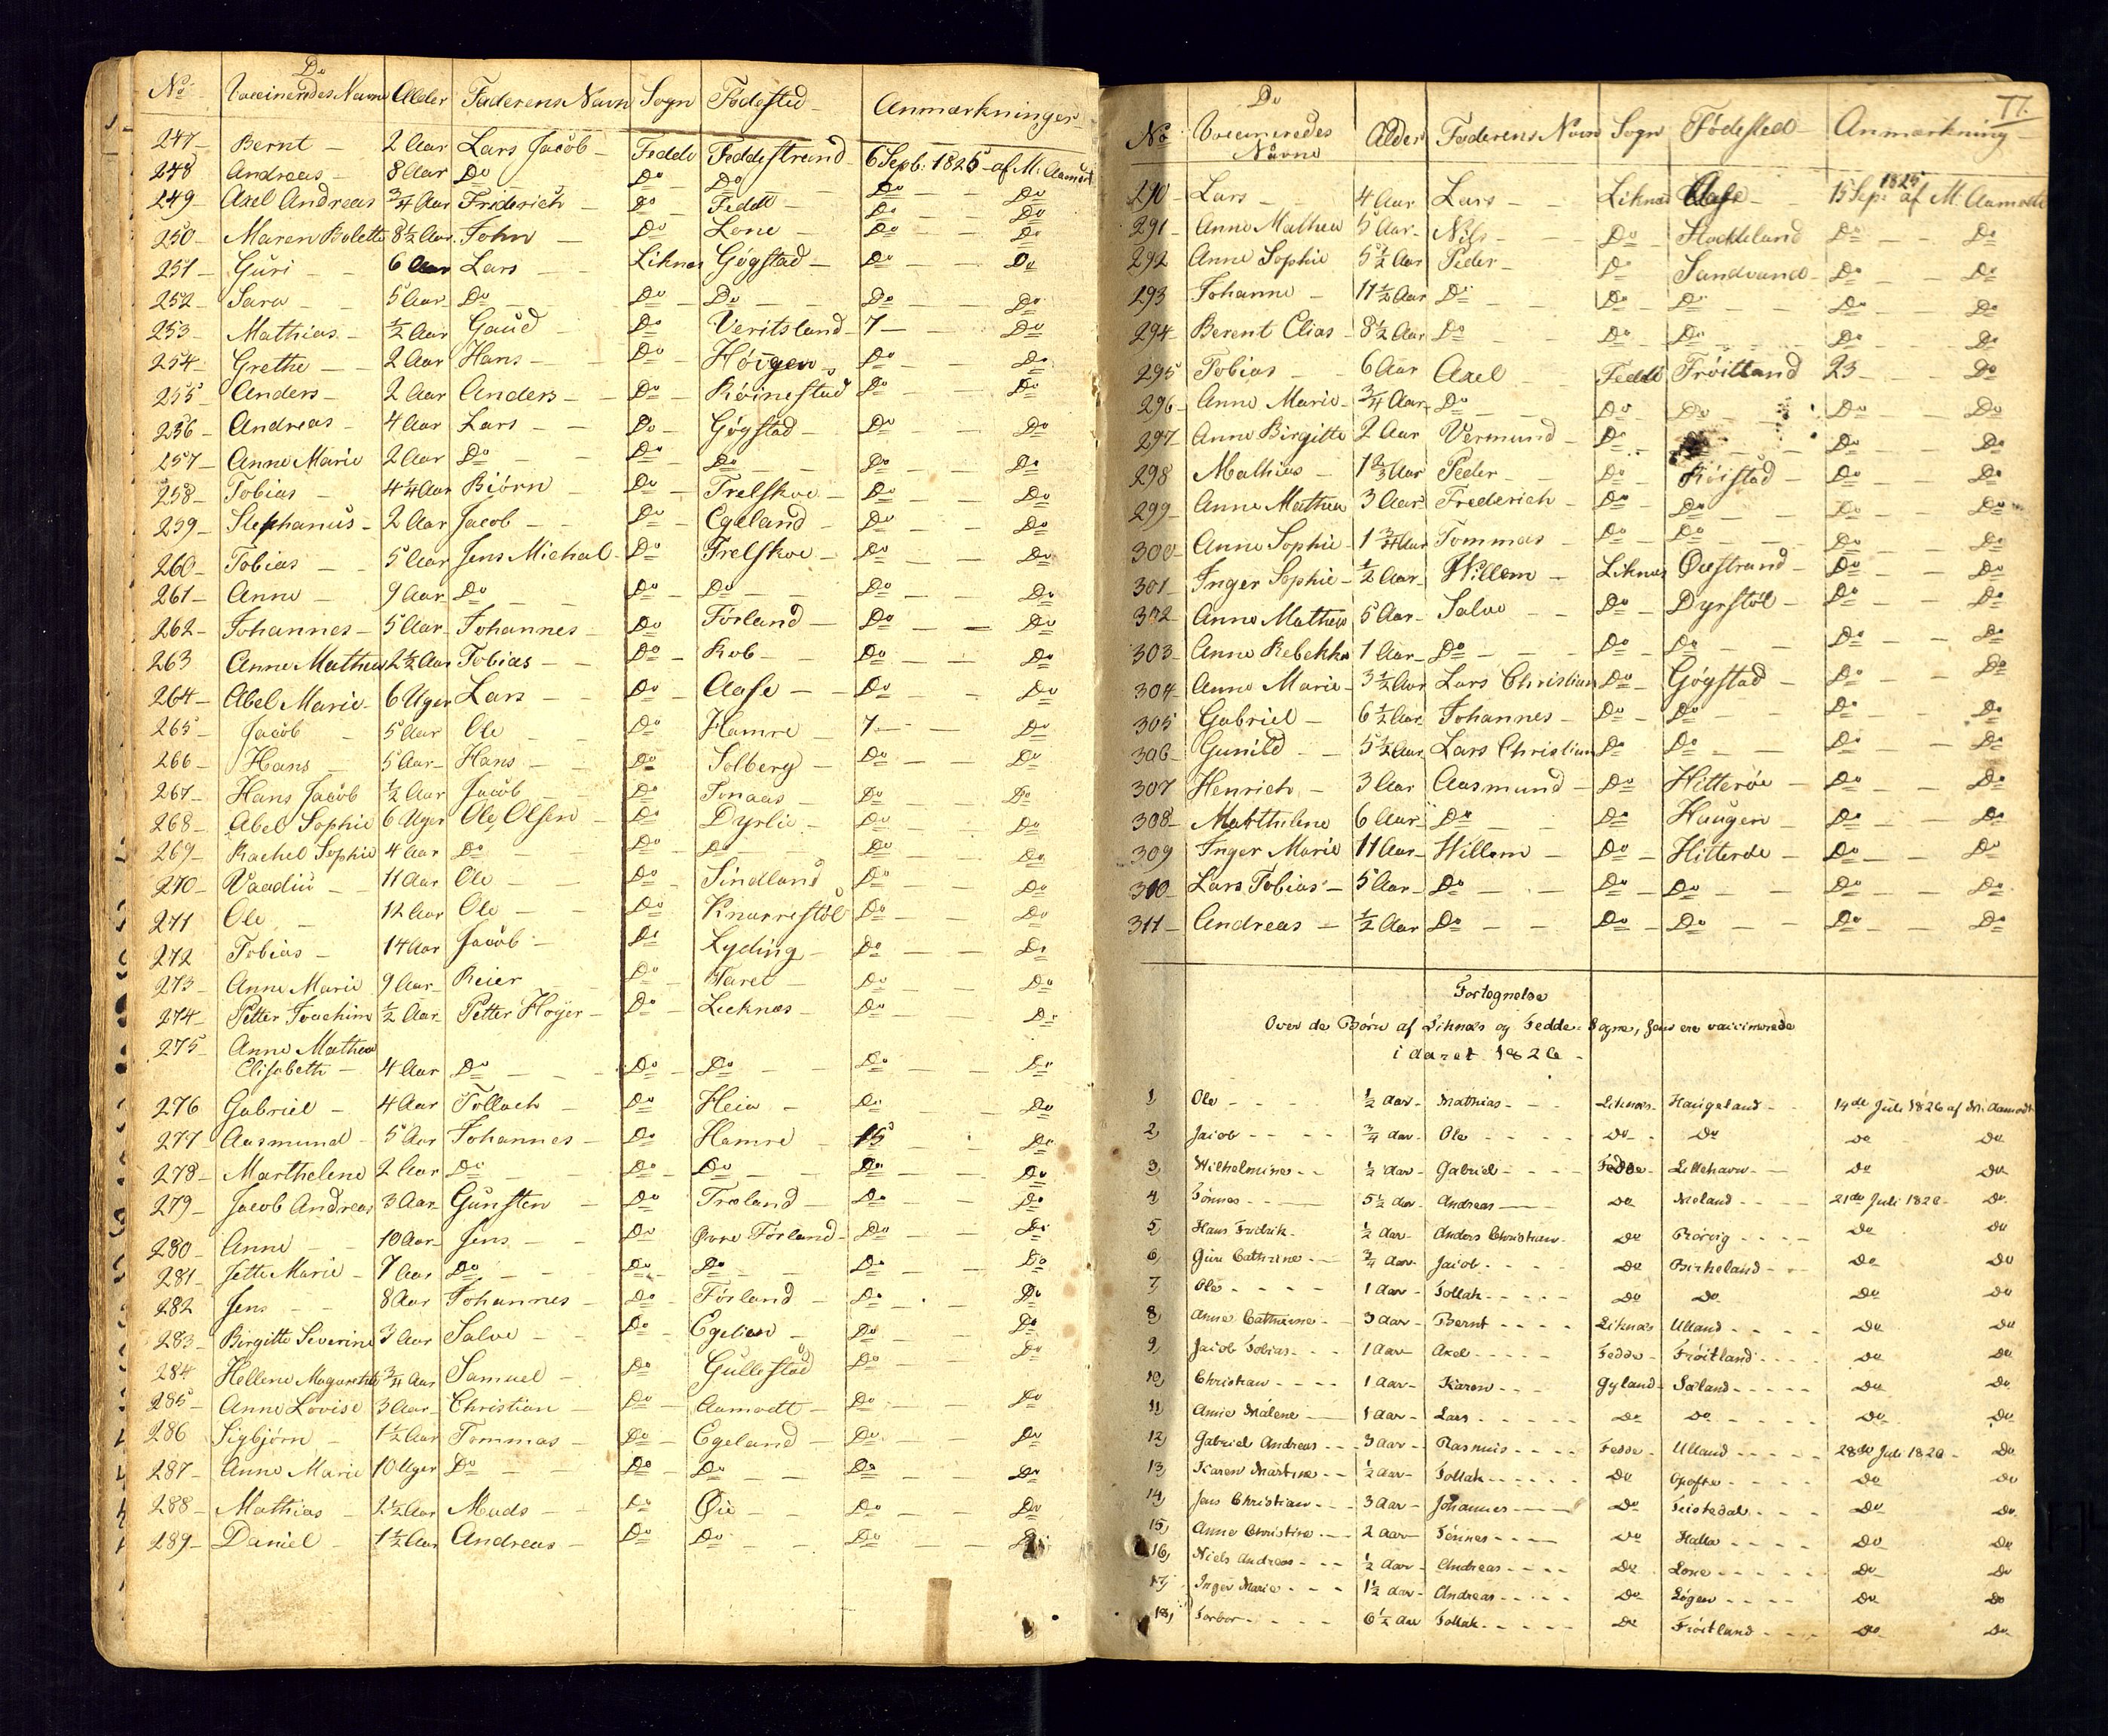 No Do Vaccineredes Navne Alder Faderens Navn Sogn Fødested Anmærkninger
247 Bernt 2 Aar Lars Jacob Fedde Feddestrand 6 Sept. 1825 af M. Aamodt
248 Andreas 8 Aar Do Do Do Do Do
249 Axel Andreas 3/4 Aar Friderich Do Fedde Do Do
250 Maren Bolette 8 1/2 Aar John Do Lone Do Do
251 Guri 6 Aar Lars Liknes Gøgstad Do Do
252 Sara 5 Aar Do Do Do Do Do
253 Mathias 1/2 Aar Gaud Do Veritsland 7 Do
254 Grethe 2 Aar Hans Do Høigen Do Do
255 Anders 2 Aar Anders Do Røinestad Do Do
256 Andreas 4 Aar Lars Do Gøgstad Do Do
257 Anne Marie 2 Aar Do Do Do Do Do
258 Tobias 4 1/4 Aar Biørn Do Trelskoe Do Do
259 Stephanus 2 Aar Jacob Do Egeland Do Do
260 Tobias 5 Aar Jens Michal Do Trelskoe Do Do
261 Anne 9 Aar Do Do Do Do Do
262 Johannes 5 Aar Johannes Do Førland Do Do
263 Anne Mathea 2 1/2 Aar Tobias Do Rob Do Do
264 Abel Marie 6 Uger Lars Do Aase Do Do
265 Jacob 5 Aar Ole Do Hamre 7 Do
266 Hans 5 Aar Hans Do Solberg Do Do
267 Hans Jacob 1/2 Aar Jacob Do Tonaas Do Do
268 Abel Sophie 6 Uger Ole Olsen Do Dyrlie Do Do
269 Rachel Sophie 4 Aar Do Do Do Do Do
270 11 Aar Ole Do Sindland Do Do
271 Ole 12 Aar Ole Do Knarrestøl Do Do
272 Tobias 14 Aar Jacob Do Lyding Do Do
273 Anne Marie 9 Aar Reier Do Do Do
274 Petter Joachim 1/2 Aar Petter Høyer Do Leeknes Do Do
275 Anne Mathea
Elisabeth 4 Aar Do Do Do Do Do
276 Gabriel 4 Aar Tollach Do Heia Do Do
277 Aasmund 5 Aar Johannes Do Hamre 15 Do
278 Marthelene 2 Aar Do Do Do Do Do
279 Jacob Andreas 3 Aar Gunsten Do Træland Do Do
280 Anne 10 Aar Jens Do Øvre Førland Do Do
281 Jette Marie 7 Aar Do Do Do Do Do
282 Jens 8 Aar Johannes Do Førland Do Do
283 Birgitte Severine 3 Aar Salve Do Do Do
284 Hellene Magarethe 3/4 Aar Samuel Do Gullestad Do Do
285 Anne Lovise 3 Aar Christian Do Aamodt Do Do
286 Sigbjørn 1 1/2 Aar Tommas Do Egeland Do Do
287 Anne Marie 10 Uger Do Do Do Do Do
288 Mathias 2 1/2 Aar Mads Do Øie Do Do
289 Daniel 1 1/2 Aar Andreas Do Do Do Do
77.
No Do Vaccineredes Navne Alder Faderens Navn Sogn Fødested Anmærkning
290 Lars 4 Aar Lars Liknes Aase 15 Sep. 1825 af M. Aamodt
291 Anne Mathea 5 Aar Nils Do Stokkeland Do Do
292 Anne Sophie 5 1/2 Aar Peder Do Sandvand Do Do
293 Johanne 11 1/2 Aar Do Do Do Do Do
294 Berent Elias 8 1/2 Aar Do Do Do Do Do
295 Tobias 6 Aar Axel Fedde Frøitland 23 Do
296 Anne Marie 3/4 Aar Do Do Do Do Do
297 Anne Birgitte 2 Aar Vermund Do Do Do
298 Mathias 1 2/3 Aar Peder Do Røistad Do Do
299 Anne Mathea 3 Aar Frederich Do Do Do Do
300 Anne Sophie 1 3/4 Aar Tommas Do Do Do Do
301 Inger Sophie 1/2 Aar Willem Liknes Øiestrand Do Do
302 Anne Mathea 5 Aar Salve Do Dyrstøl Do Do
303 Anne Rebekka 1 Aar Do Do Do Do Do
304 Anne Marie 3 1/2 Aar Lars Christian Do Gøgstad Do Do
305 Gabriel 6 1/2 Aar Johannes Do Do Do Do
306 Gunild 5 1/2 Aar Lars Christian Do Do Do Do
307 Henrich 3 Aar Aasmund Do Hitterøe Do Do
308 Marthelene 6 Aar Do Do Haugen Do Do
309 Inger Marie 11 Aar Willem Do Hitterøe Do Do
310 Lars Tobias 5 Aar Do Do Do Do Do
311 Andreas 1/2 Aar Do Do Do Do Do
Fortegnelse
Over de Børn af Liknæs og Fedde Sogne, som ere vaccinerede
i Aaret 1826
1 Ole 1/2 Aar Mathias Liknæs Haugeland 14de Juli 1826 af M. Aamodt
2, Jacob 3/4 Aar Ole Do Do Do Do
3, Wilhelmine 1/2 Aar Gabriel Fedde Lillehavn Do Do
4, Tønnes 5 1/2 Aar Andreas Do Meland 21de Juli 1826 Do
5, Hans Fridrik 1/2 Aar Anders Christian Do Rørvig Do Do
6, Guri Cathrine 3/4 Aar Jacob Do Birkeland Do Do
7, Ole 1 Aar Tollak Do Do Do Do
8, Anne Cathrine 3 Aar Bernt Liknæs Ulland Do Do
9, Jacob Tobias 1 Aar Axel Fedde Frøitland Do Do
10, Christian 1 Aar Karen Gyland Sæland Do Do
11, Anne Malene 1 Aar Lars Do Do Do Do
12, Gabriel Andreas 3 Aar Rasmus Fedde Ulland 28de Juli 1826 Do
13, Karen Martine 1/2 Aar Tollak Do Opofte Do Do
14, Jens Christian 3 Aar Johannes Do Feistedal Do Do
15, Anne Christine 2 Aar Tønnes Do Halla Do Do
16, Niels Andreas 1/2 Aar Andreas Do Lone Do Do
17, Inger Marie 1 1/2 Aar Andreas Do Løgen Do Do
18, Torbor 6 1/2 Aar Tollak Do Frøitland Do Do